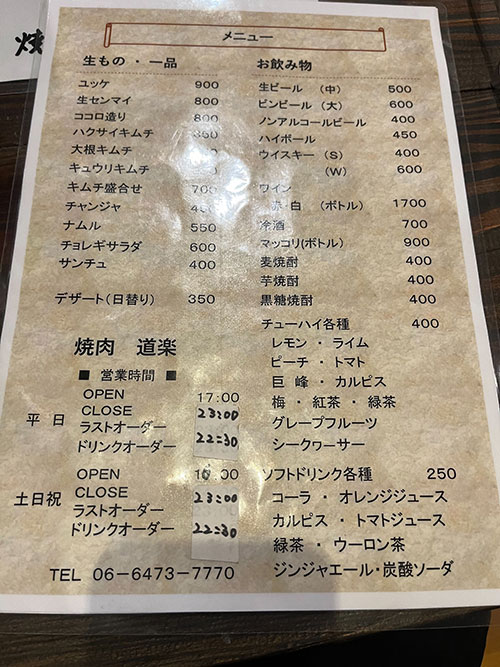 焼
メニュー
生もの ・ 一品
ユッケ 900
生センマイ 800
ココロ造り 800
ハクサイキムチ
大根キムチ
キュウリキムチ
キムチ盛合せ 700
チャンジャ
ナムル 550
チョレギサラダ 600
サンチュ 400
デザート(日替り) 350
焼肉 道楽
■ 営業時間 ■
平 日
OPEN 17:00
CLOSE 23:00
ラストオーダー
ドリンクオーダー 22:30
土日祝
OPEN 16:00
CLOSE 23:00
ラストオーダー
ドリンクオーダー 22:30
TEL 06-6473-7770
お飲み物
生ビール (中) 500
ビンビール (大) 600
ノンアルコールビール 400
ハイボール 450
ウイスキー (S) 400
(W) 600
ワイン
赤・白 (ボトル) 1700
冷酒 700
マッコリ(ボトル) 900
麦焼酎 400
芋焼酎 400
黒糖焼酎 400
チューハイ各種 400
レモン ・ ライム
ピーチ ・ トマト
巨峰 ・ カルピス
梅 ・ 紅茶 ・ 緑茶
グレープフルーツ
シークヮーサー
ソフトドリンク各種 250
コーラ ・ オレンジジュース
カルピス ・ トマトジュース
緑茶 ・ ウーロン茶
ジンジャエール・炭酸ソーダ